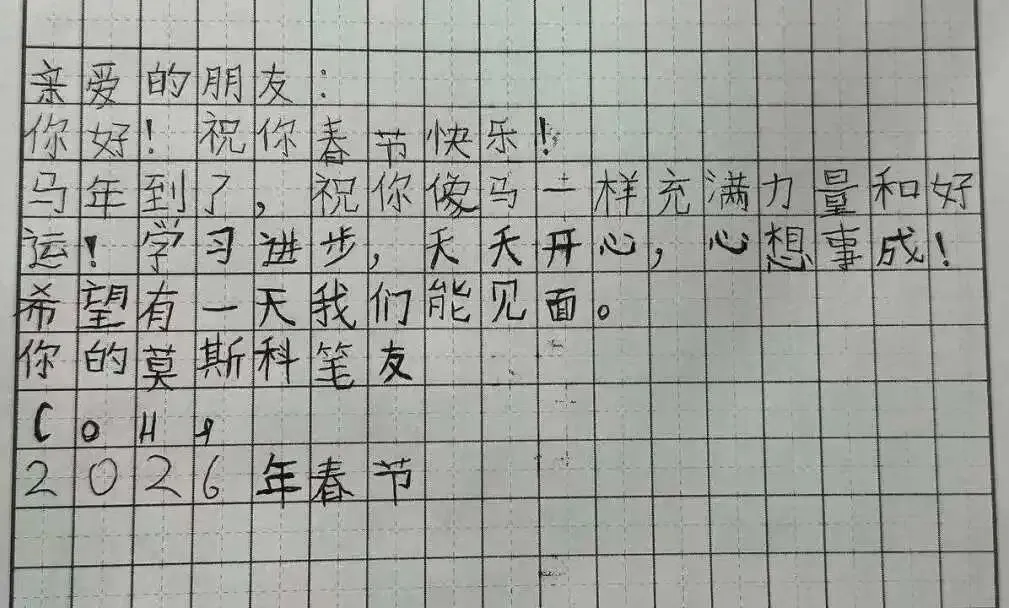 亲爱的朋友：
你好！祝你春节快乐！
马年到了，祝你像马一样充满力量和好
运！学习进步，天天开心，心想事成！
希望有一天我们能见面。
你的莫斯科笔友
Соня
2026年春节